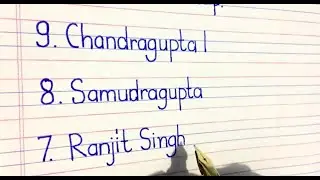 9. Chandragupta I
8. Samudragupta
7. Ranjit Singh